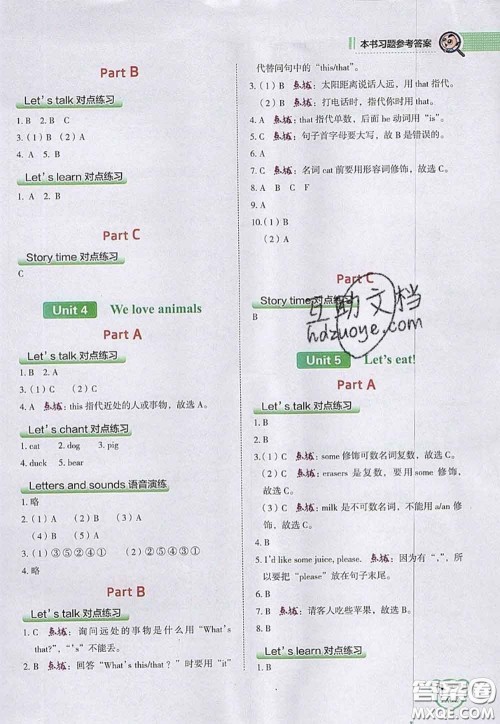 本书习题参考答案
Part B
Let's talk 对点练习
1. B  2. B  4. B
3. (1) B  (2) A
Let's learn 对点练习
1. A  2. B
Part C
Story time 对点练习
C
Unit 4  We love animals
Part A
Let's talk 对点练习
1. B  2. A
3. (1) C  (2) A
4. A  点拨：this 指代近处的人或事物，故选 A。
Let's chant 对点练习
1. cat  2. dog  3. pig
4. duck  5. bear
Letters and sounds 语音演练
1. 略
2. (1) A  (2) B  (3) A
3. (1) ③⑤②④①
(2) ③①⑤②④
4. 略
Part B
Let's talk 对点练习
1. C  点拨：询问远处的事物是什么用 "What's
that?"，"'s" 不能丢，故选 C。
2. B  点拨：回答 "What's this/that？" 时要用 "it"
代替问句中的 "this/that"。
3. (1) B  点拨：太阳距离说话人远，用 that 指代。
(2) B  点拨：打电话时，指代你时用 that。
4. A  点拨：that 指代单数，后面 be 动词用 "is"。
5. B  点拨：句子首字母要大写，故 B 是错误的。
6. A
7. C  点拨：名词 cat 前要用形容词修饰，故选 C。
8. A
9. A
10. (1) B
(2) A
Part C
Story time 对点练习
B
互助文档
hdzuoye.com
Unit 5  Let's eat!
Part A
Let's talk 对点练习
1. B
2. B
3. (1) C  点拨：some 修饰可数名词复数，故选 C。
(2) C  点拨：erasers 是复数，要用 some 修饰，
故选 C。
(3) C  点拨：milk 是不可数名词，不能用 a/an 修
饰，故选 C。
4. B
5. I'd like some juice, please.  点拨：因为有 ","，所
以要把 "please" 放在句子末尾。
6. B
7. B  点拨：请客人吃些苹果，故选 B。
8. B
Let's learn 对点练习
1. B
答案圈
MXQE.COM